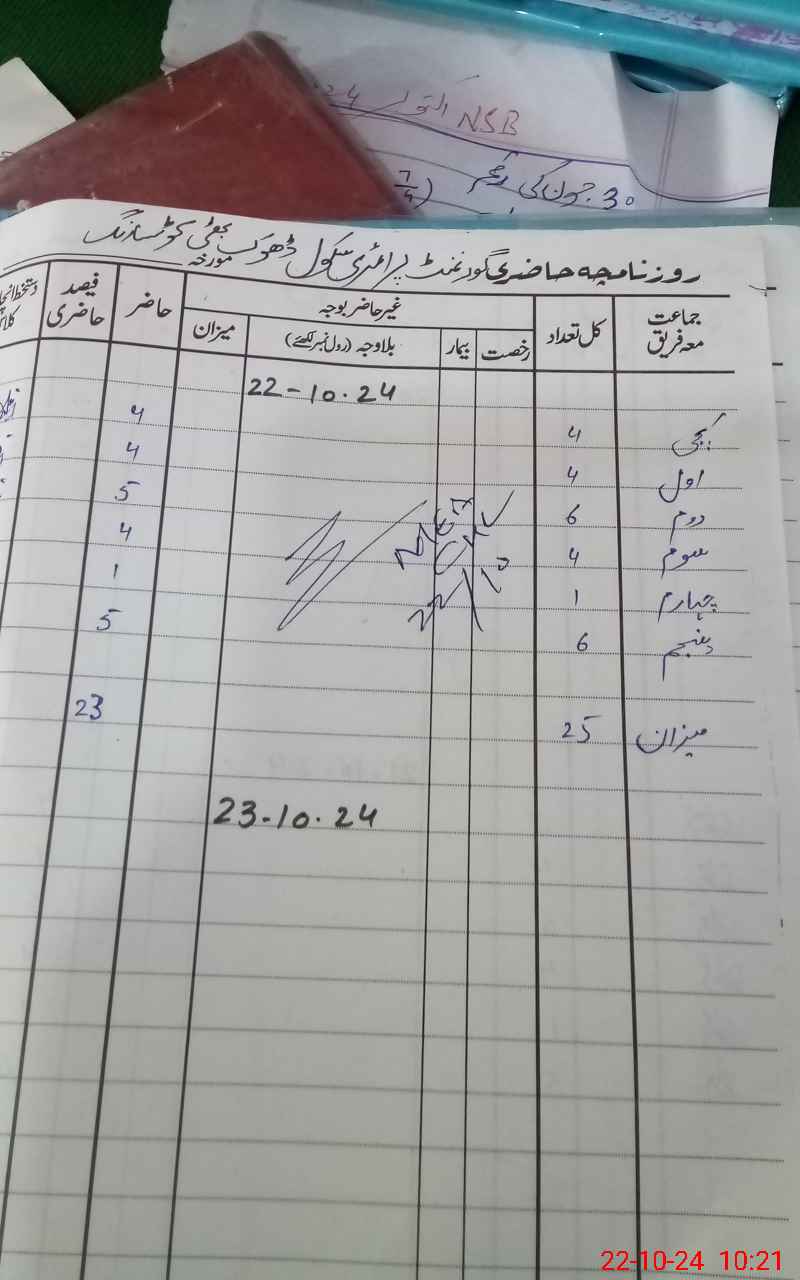 NSB اکتوبر
30 جون کی رقم
روزنامچہ حاضری گورنمنٹ پرائمری سکول ڈھوک بھٹی کوٹ سارنگ
مورخہ
جماعت معہ فریق کل تعداد غیر حاضر بوجہ حاضر فیصد حاضری
رخصت بیمار بلاوجہ (رول نمبر لکھئے) میزان
22-10.24
کچی 4 4
اول 4 4
دوم 6 5
سوم 4 4
چہارم 1 1
پنجم 6 5
MEA
22/10
میزان 25 23
23-10.24
22-10-24 10:21